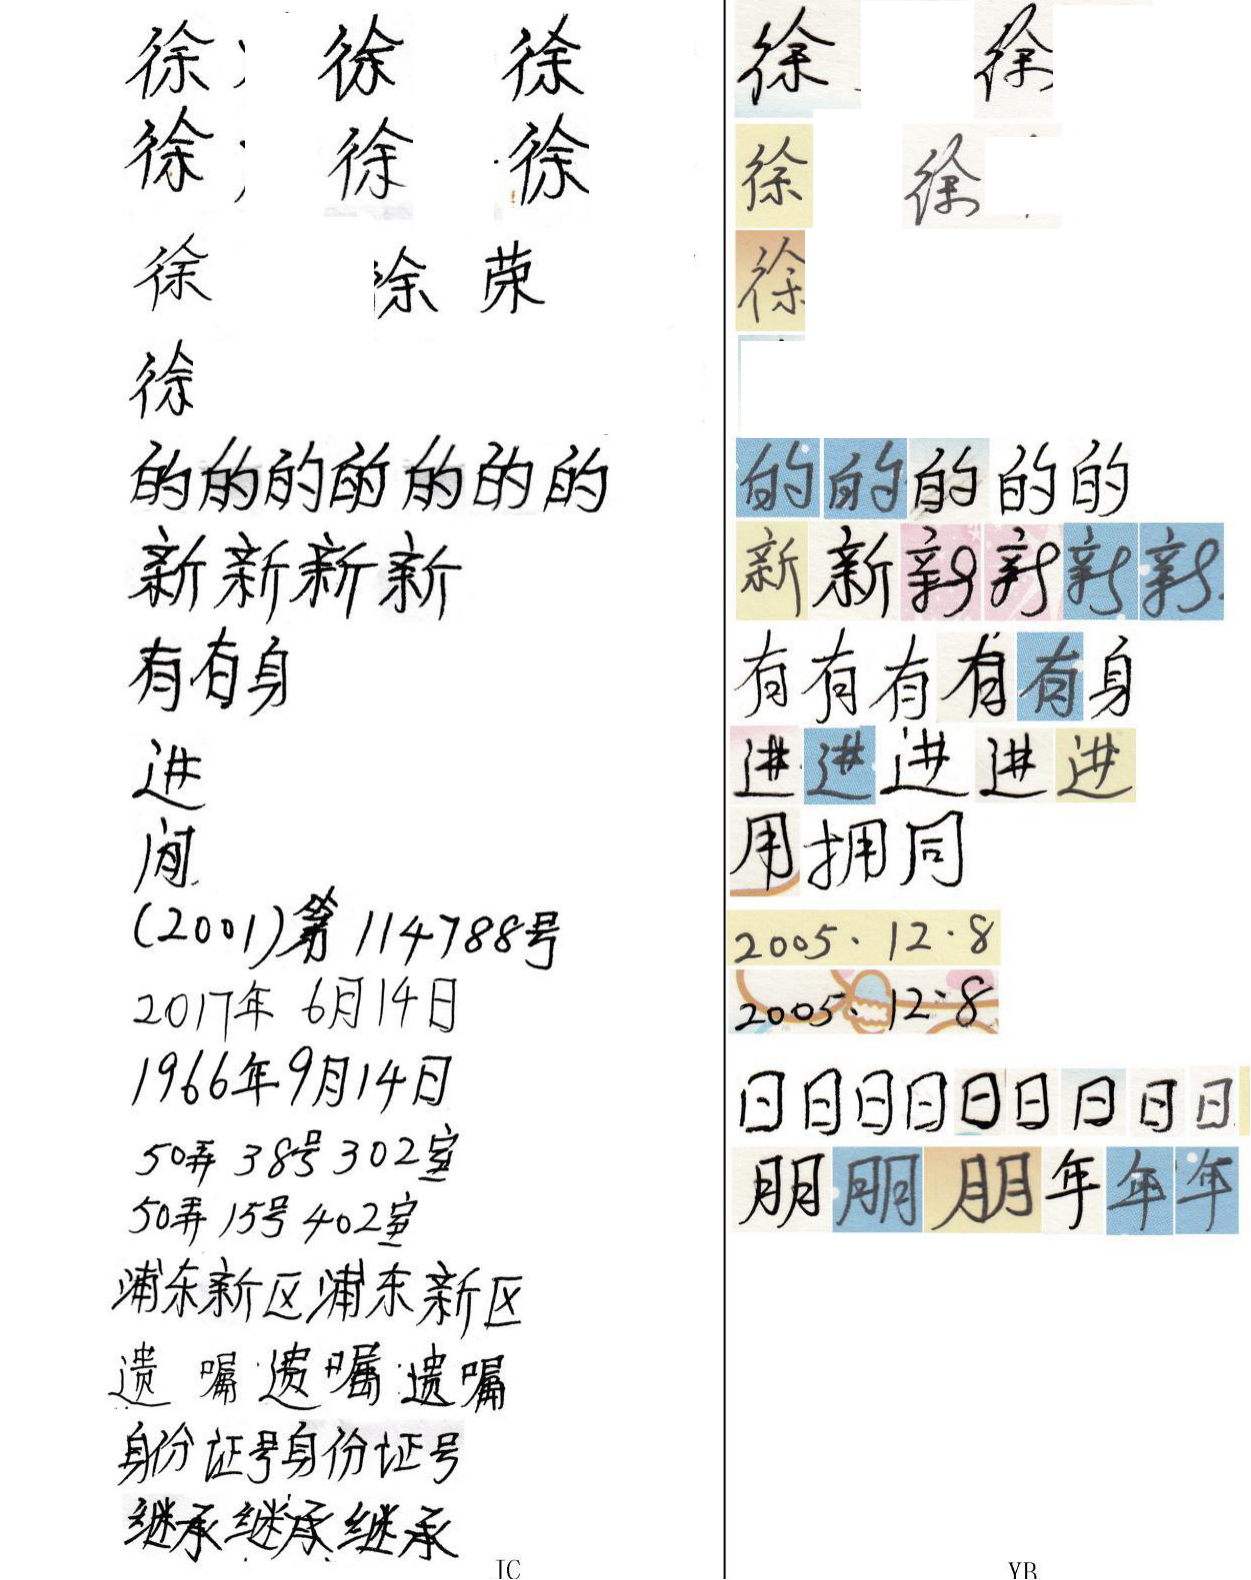 徐 徐 徐
徐 徐 徐
徐 徐 荣
徐
的的的的的的的
新新新新
有有身
进
间
(2001)第114788号
2017年6月14日
1966年9月14日
50弄38号302室
50弄15号402室
浦东新区浦东新区
遗嘱遗嘱遗嘱
身份证号身份证号
继承继承继承
JC
徐 徐
徐 徐
徐
的的的的的
新新新新新新
有有有有有身
进进进进进
用拥同
2005.12.8
2005.12.8
日日日日日日日日日
朋朋朋年年年
YB